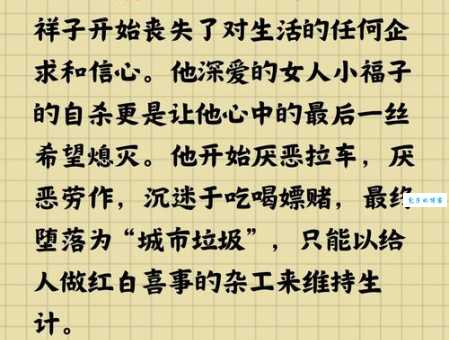 祥子开始丧失了对生活的任何企
求和信心。他深爱的女人小福子
的自杀更是让他心中的最后一丝
希望熄灭。他开始厌恶拉车，厌
恶劳作，沉迷于吃喝嫖赌，最终
堕落为“城市垃圾”，只能以给
人做红白喜事的杂工来维持生
计。